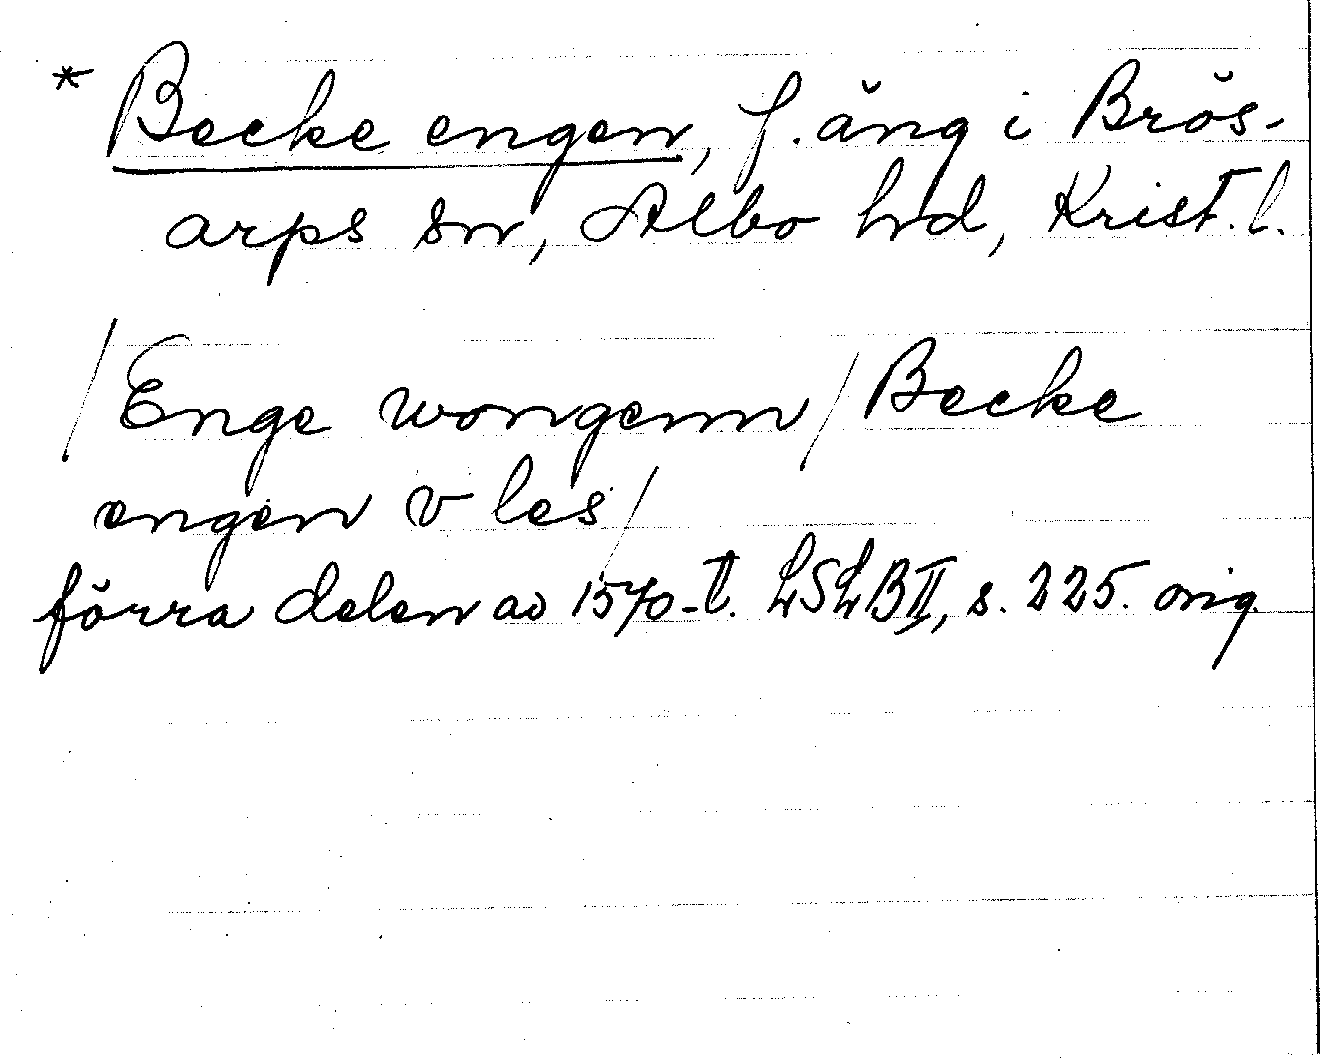 * Becke engen, f. äng i Brös-
arps sn, Albo hrd, Krist. l.
/Enge wongenn/Becke
engen v les/
förra delen av 1570-t. LSLB II, s. 225. orig